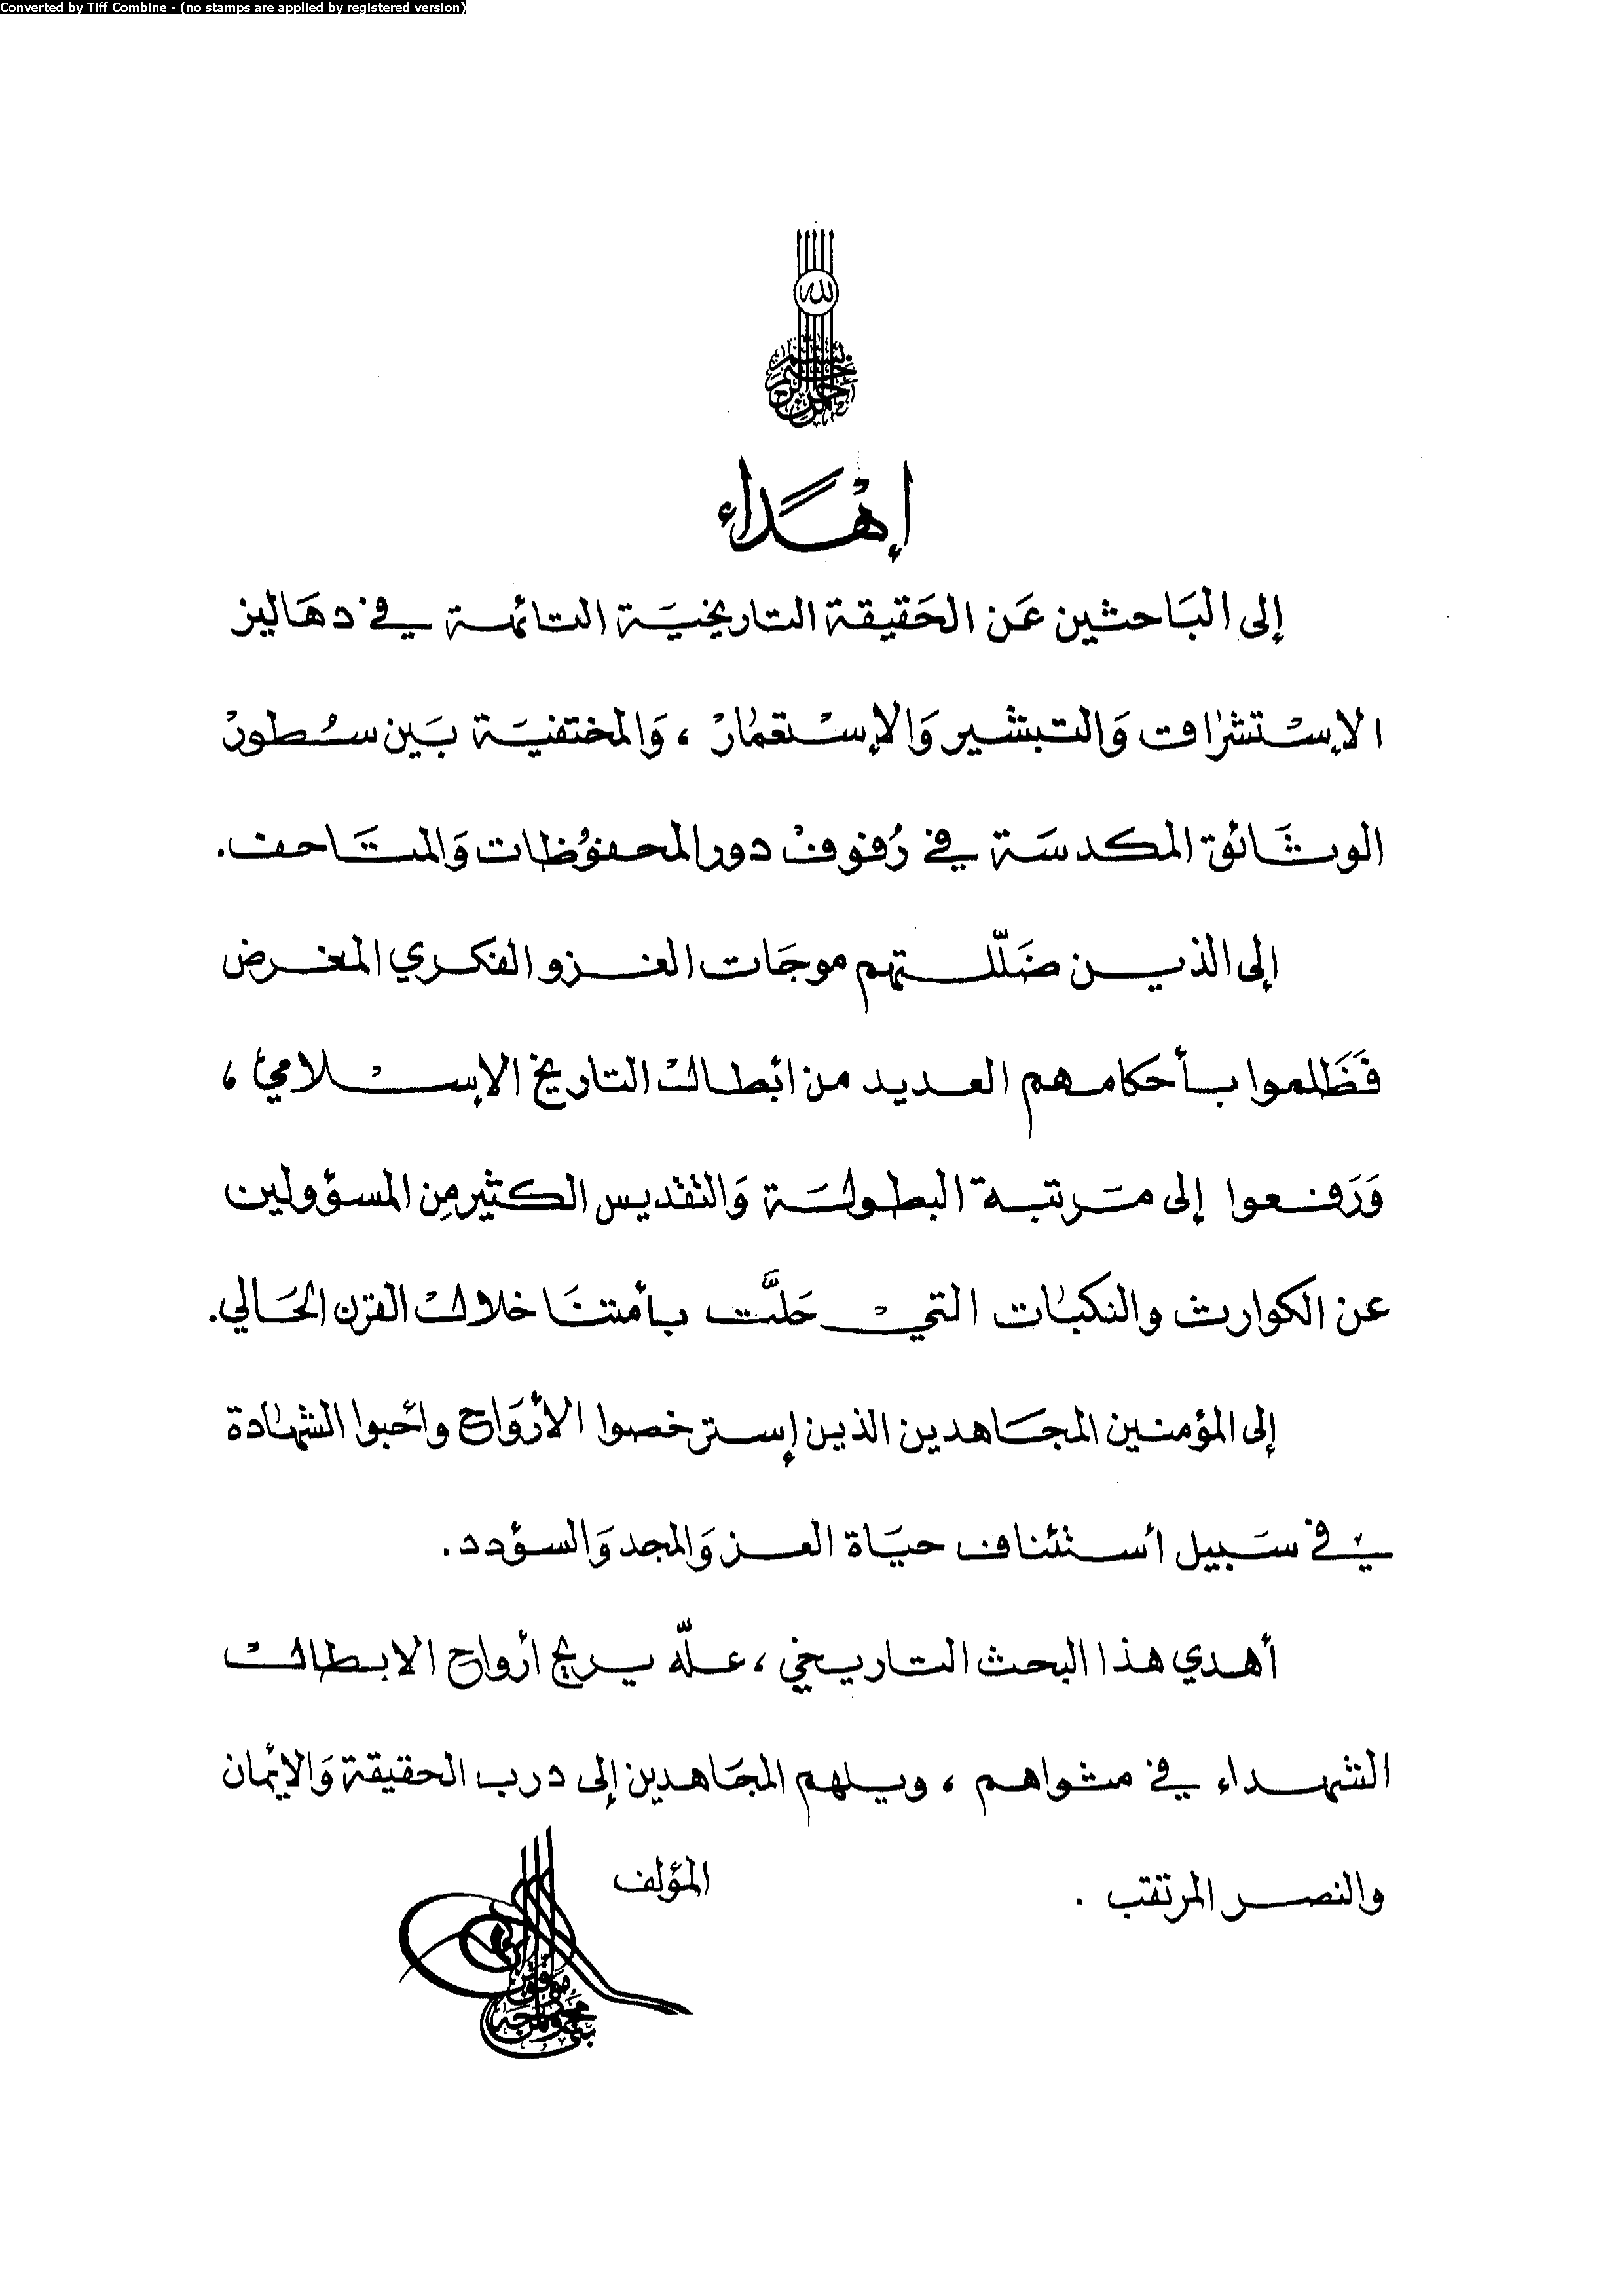 Converted by Tiff Combine - (no stamps are applied by registered version)
إهداء
إلى البَاحثين عَن الحَقيقة التاريخيَة التائهة في دهَاليز
الإستشراق وَالتبشير وَالإستعمار ، وَالمختفيَة بَين سطور
الوثَائق المكدسَة في رُفوف دور المحفوُظات وَالمتَاحف.
إلى الذين ضَلّلتهم موجَات الغزو الفكري المغرض
فَظَلموا بأحكامهم العديد من ابْطال التاريخ الإسلامي ،
وَرَفعوا إلى مَرتبة البطولَة وَالتقديس الكثير مِن المسؤولين
عن الكوارث والنكبات التي حَلَّت بأمتنَا خلال القرن الحَالي.
إلى المؤمنين المجَاهدين الذين إسترخصوا الأرْوَاح واحبوا الشهَادة
في سَبيل أستئناف حيَاة العز وَالمجد وَالسؤدد .
أهدي هذا البحث التاريخي ، علّه يريح ارواح الابطال
الشهداء في مثواهم ، ويلهم المجَاهدين إلى درب الحقيقة وَالإيمان
والنصر المرتقب .
المؤلف